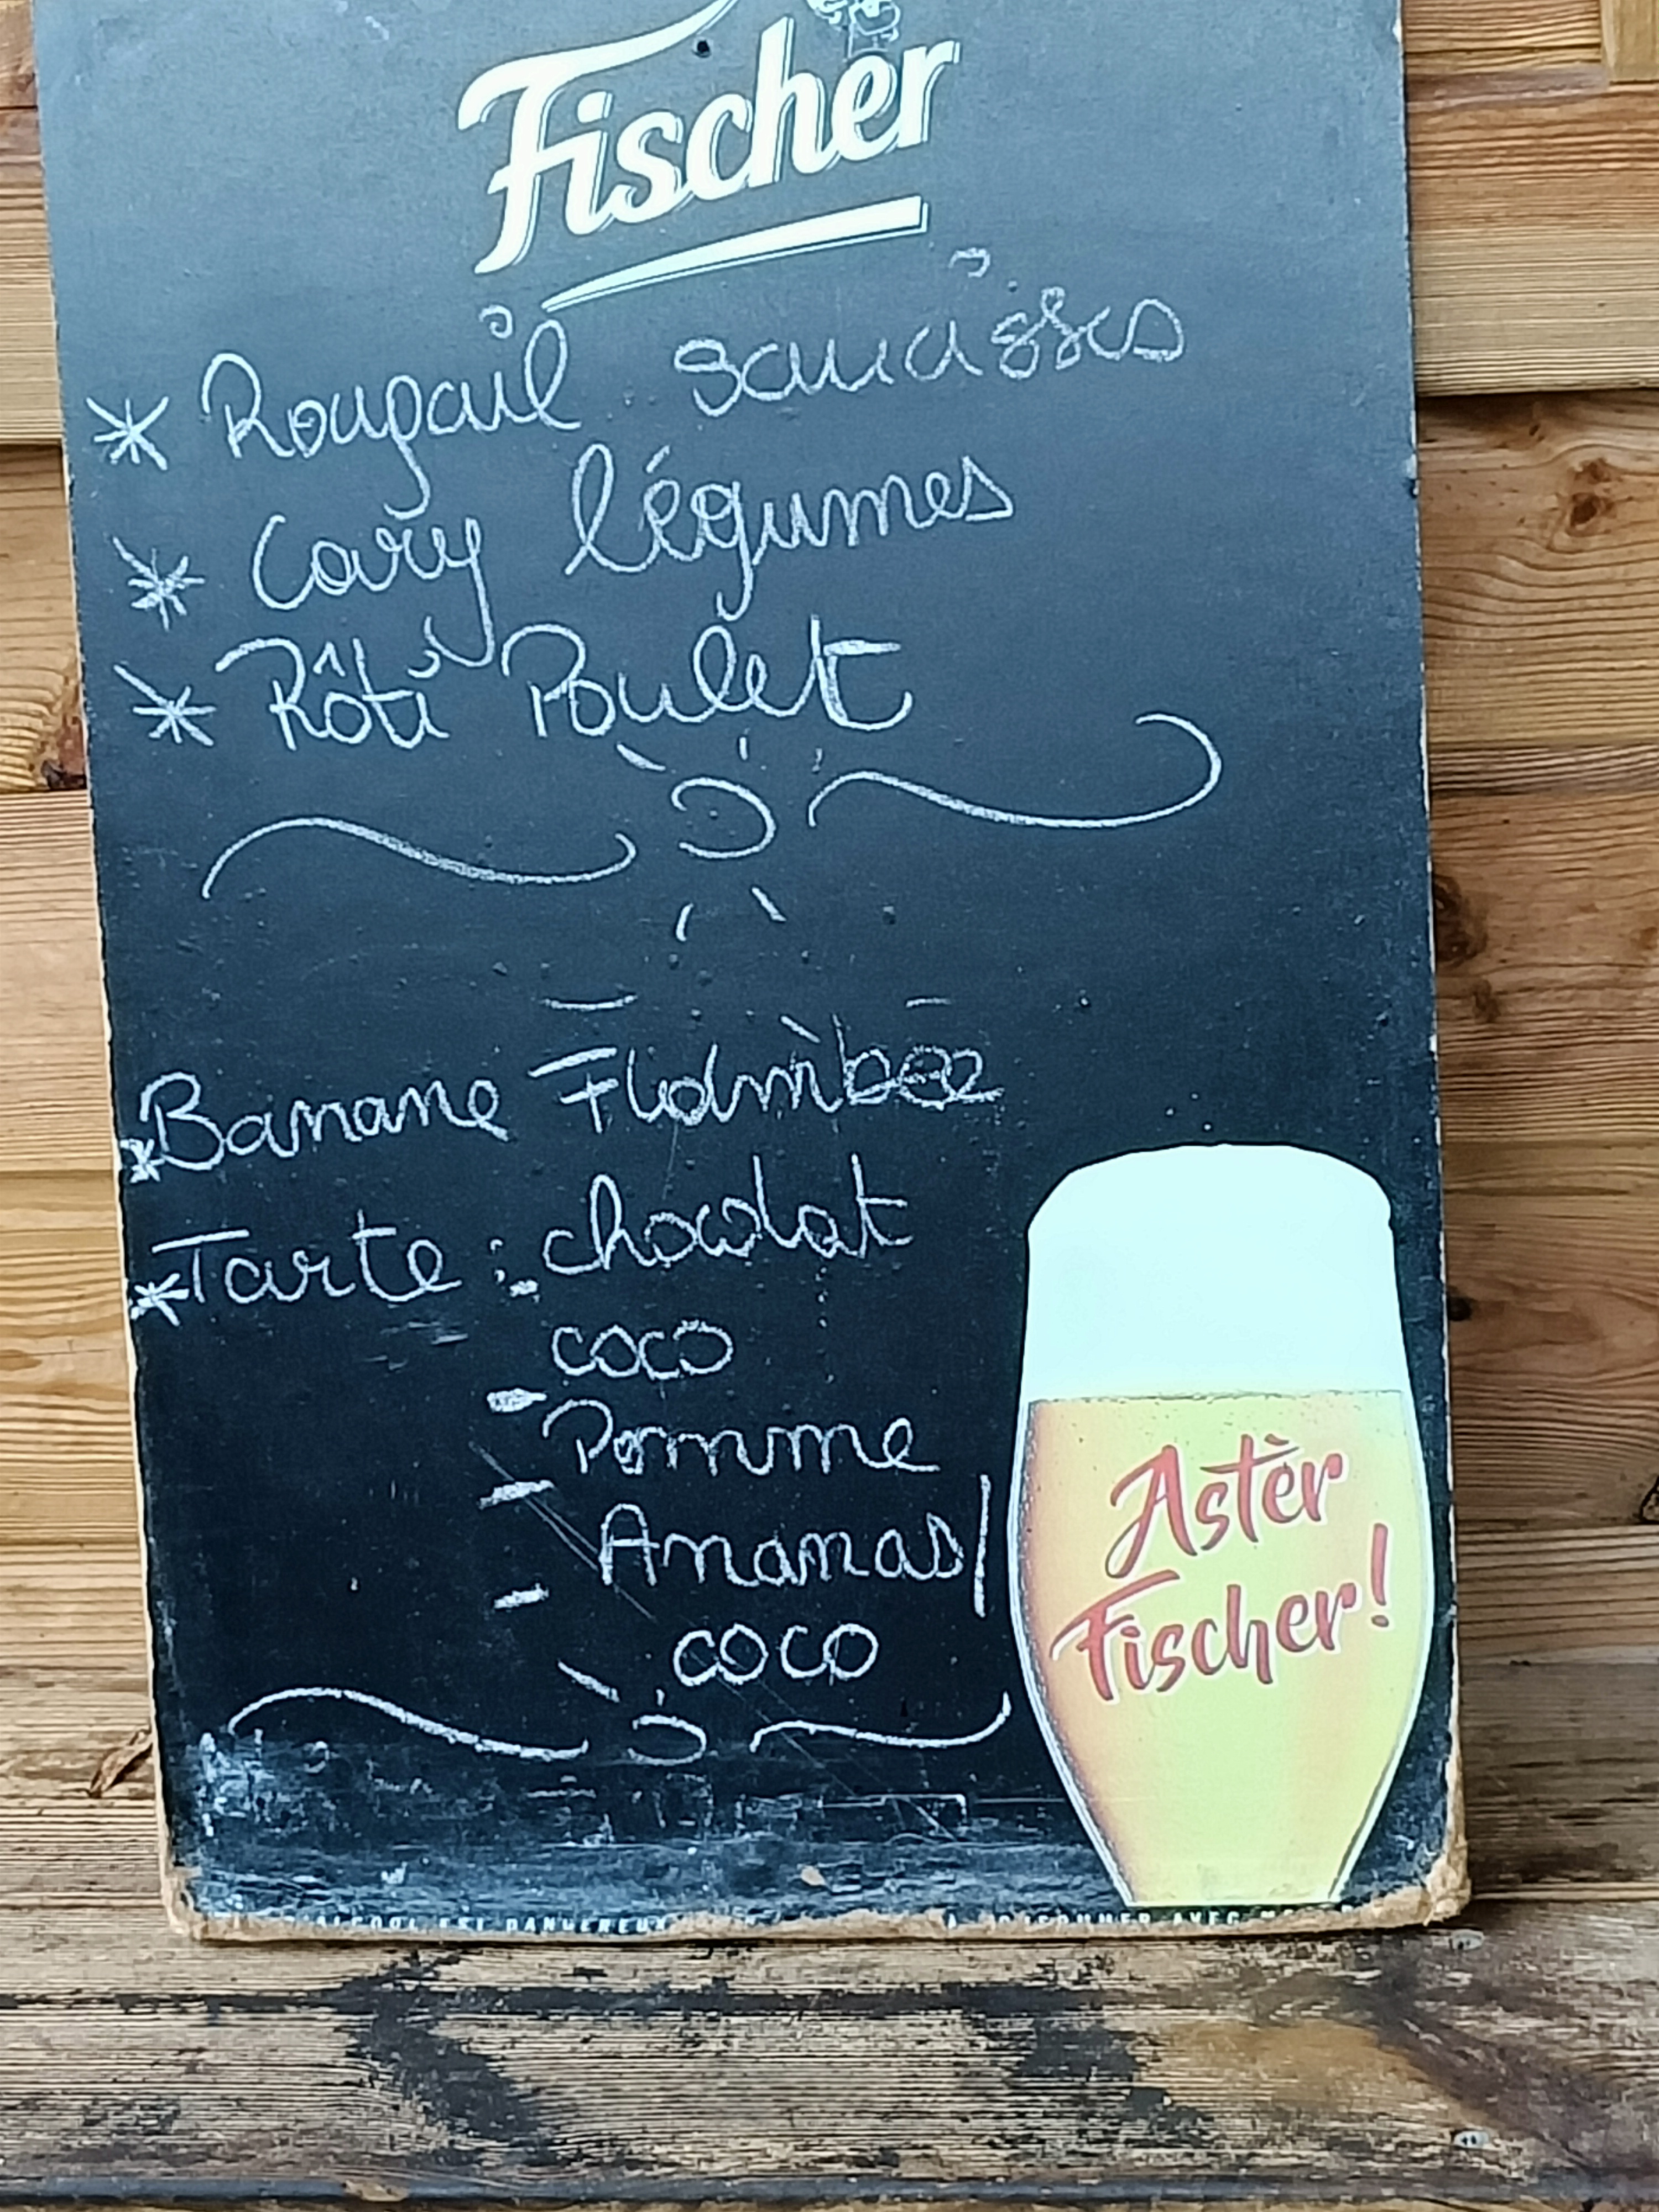 Fischer
* Rougail saucisses
* Cary légumes
* Rôti Poulet
* Banane Flambée
* Tarte : chocolat
- coco
- Pomme
- Ananas/
coco
Astèr
Fischer!
ALCOOL EST DANGEREUX